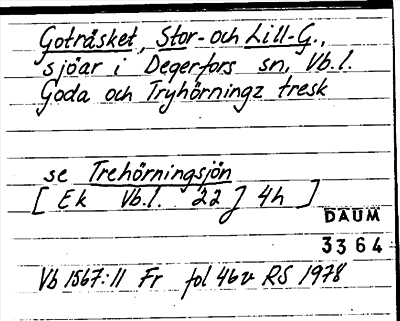 Goträsket, Stor- och Lill-G.,
sjöar i Degerfors sn, Vb.l.
Goda och Tryhörningz tresk
se Trehörningsjön
[Ek Vb.l. 22] 4h]
DAUM
3364
Vb 1567:11 Fr fol 46v RS 1978